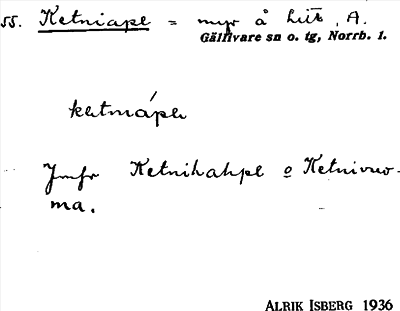 55. Ketniape = myr å litt, A.
Gällivare sn o. tg, Norrb. l.
ketmápe
Jmfr Ketnihahpe o Ketnivuo-
ma.
ALRIK ISBERG 1936